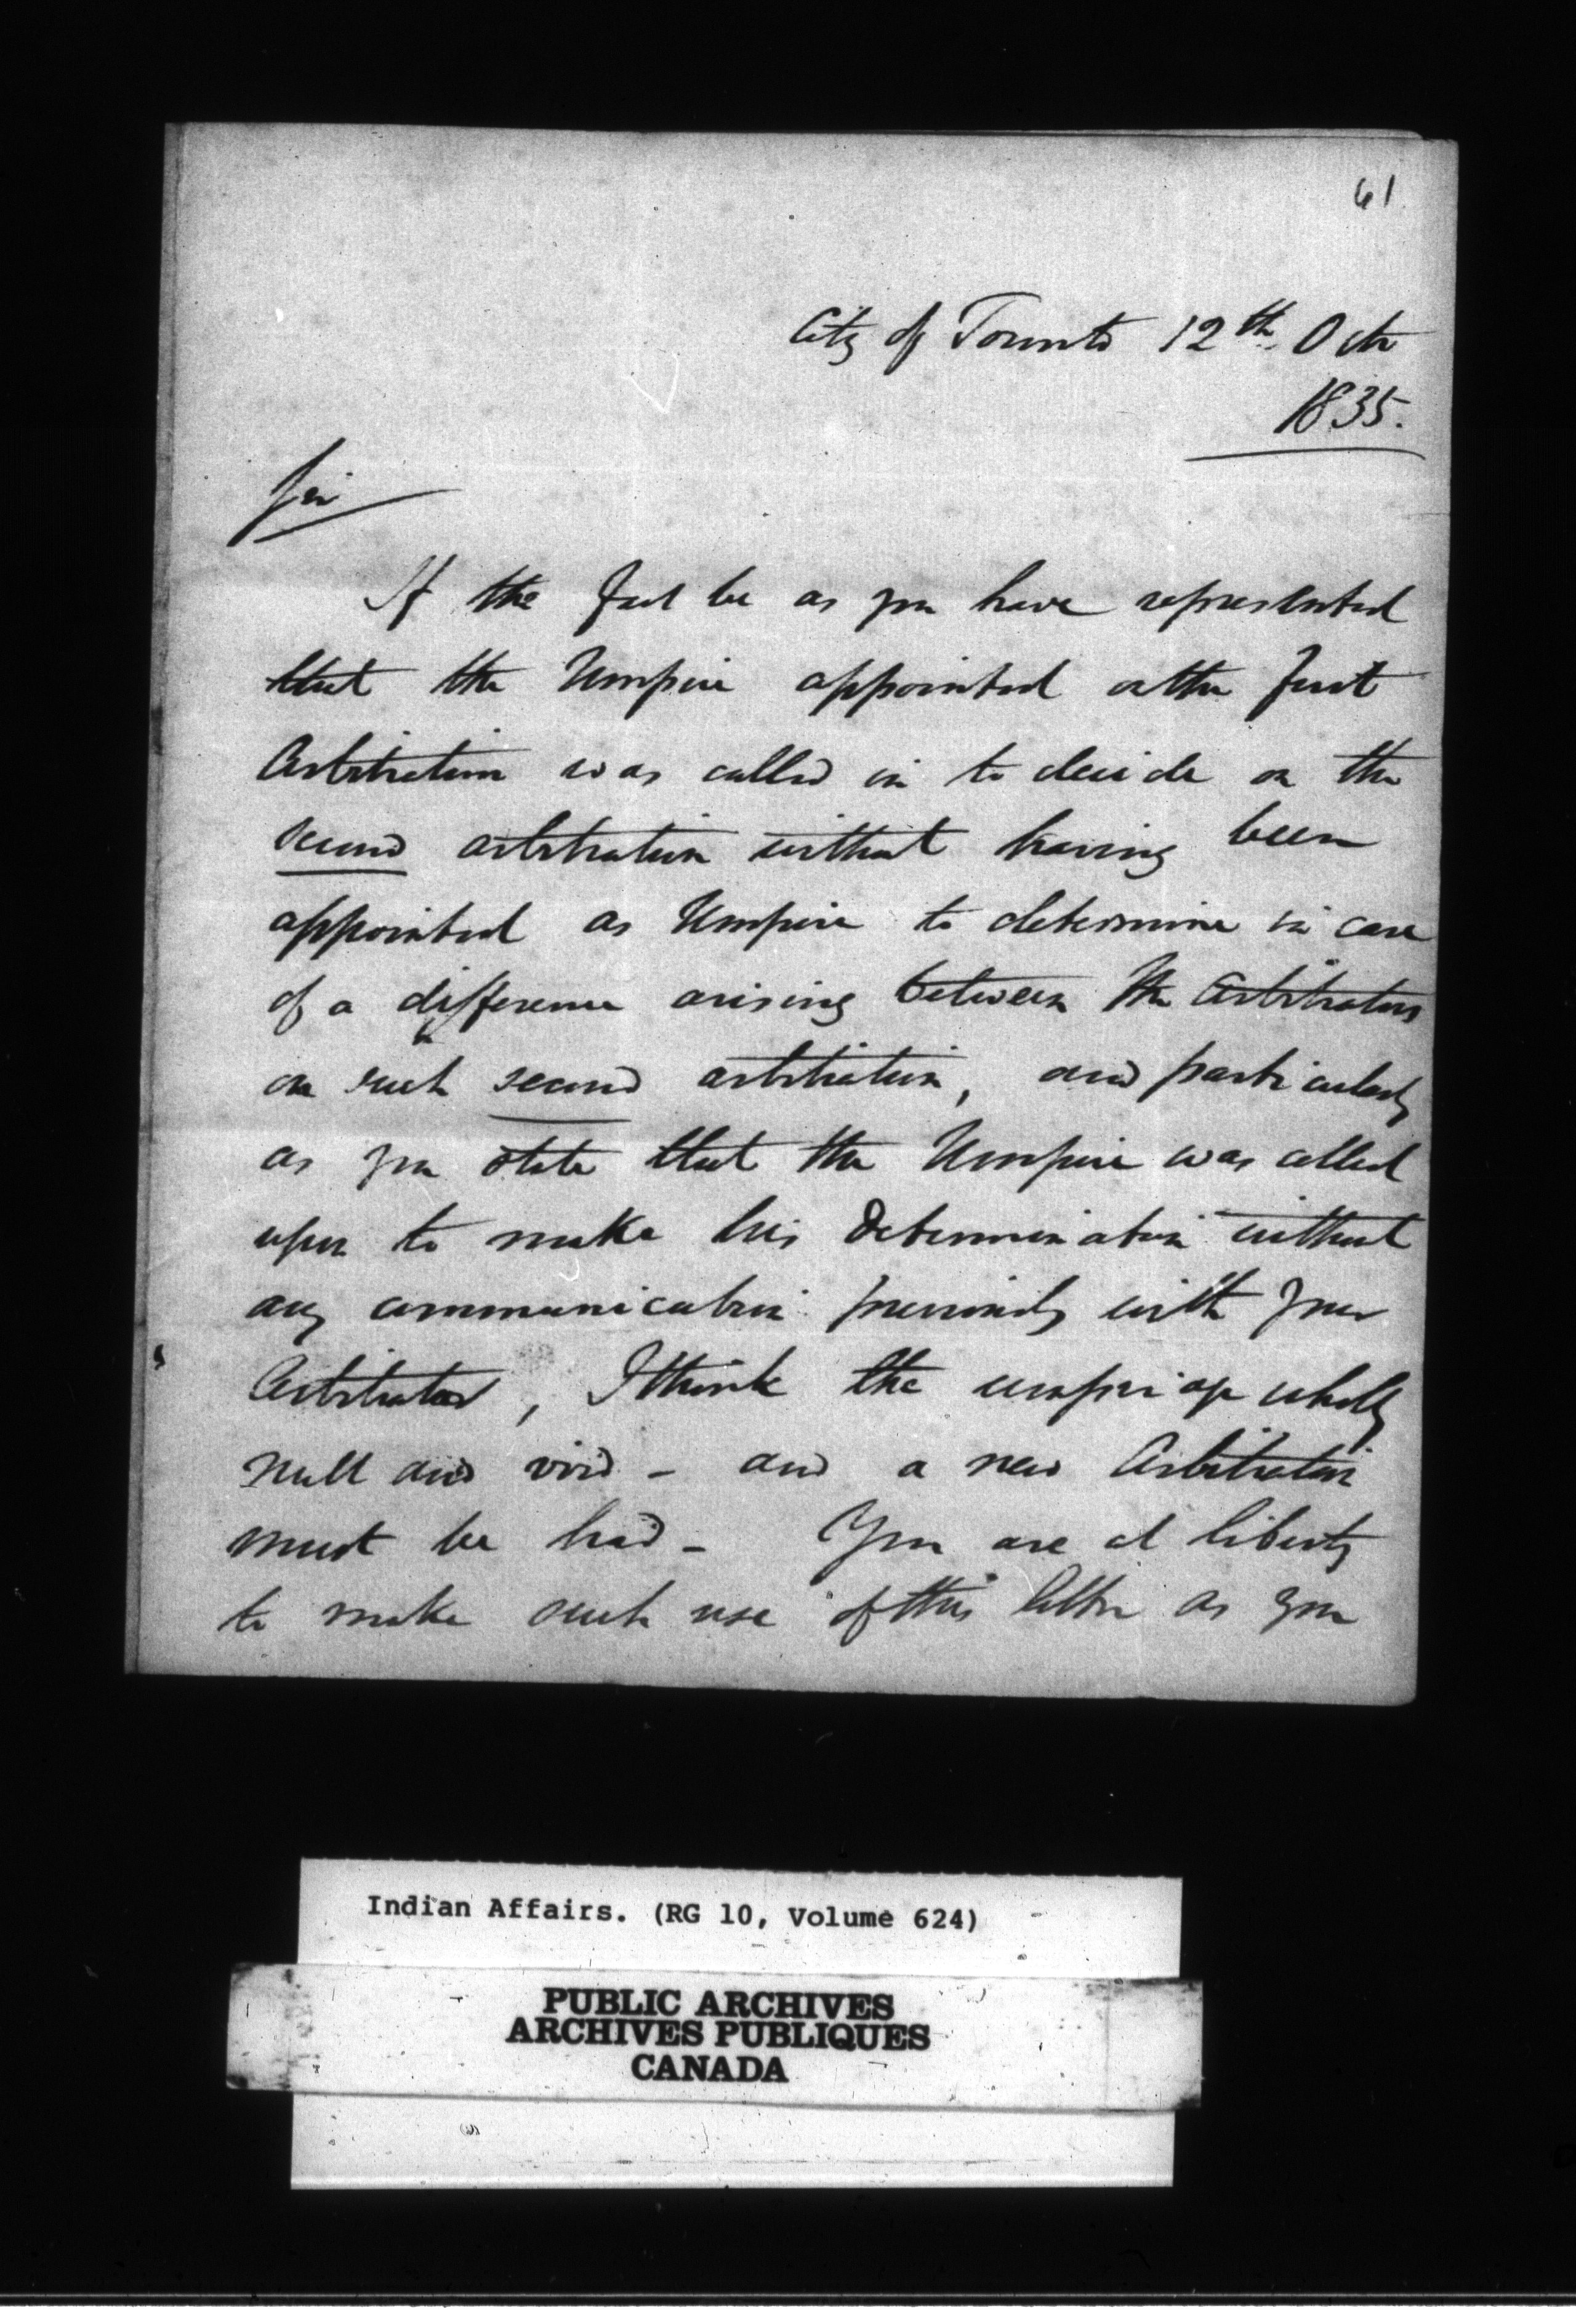 61
City of Toronto 12th Octr
1835.
Sir
If the fact be as you have represented
that the Umpire appointed on the first
Arbitration was called in to decide on the
second arbitration without having been
appointed as Umpire to determine in case
of a difference arising between the Arbitrators
on such second arbitration, and particularly
as you state that the Umpire was called
upon to make his determination without
any communication previously with your
Arbitrator, I think the umpirage wholly
null and void - and a new Arbitration
must be had - You are at liberty
to make such use of this letter as you
Indian Affairs. (RG 10, Volume 624)
PUBLIC ARCHIVES
ARCHIVES PUBLIQUES
CANADA